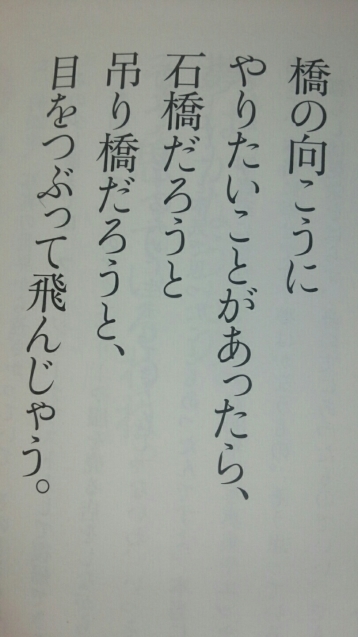 橋の向こうに
やりたいことがあったら、
石橋だろうと
吊り橋だろうと、
目をつぶって飛んじゃう。